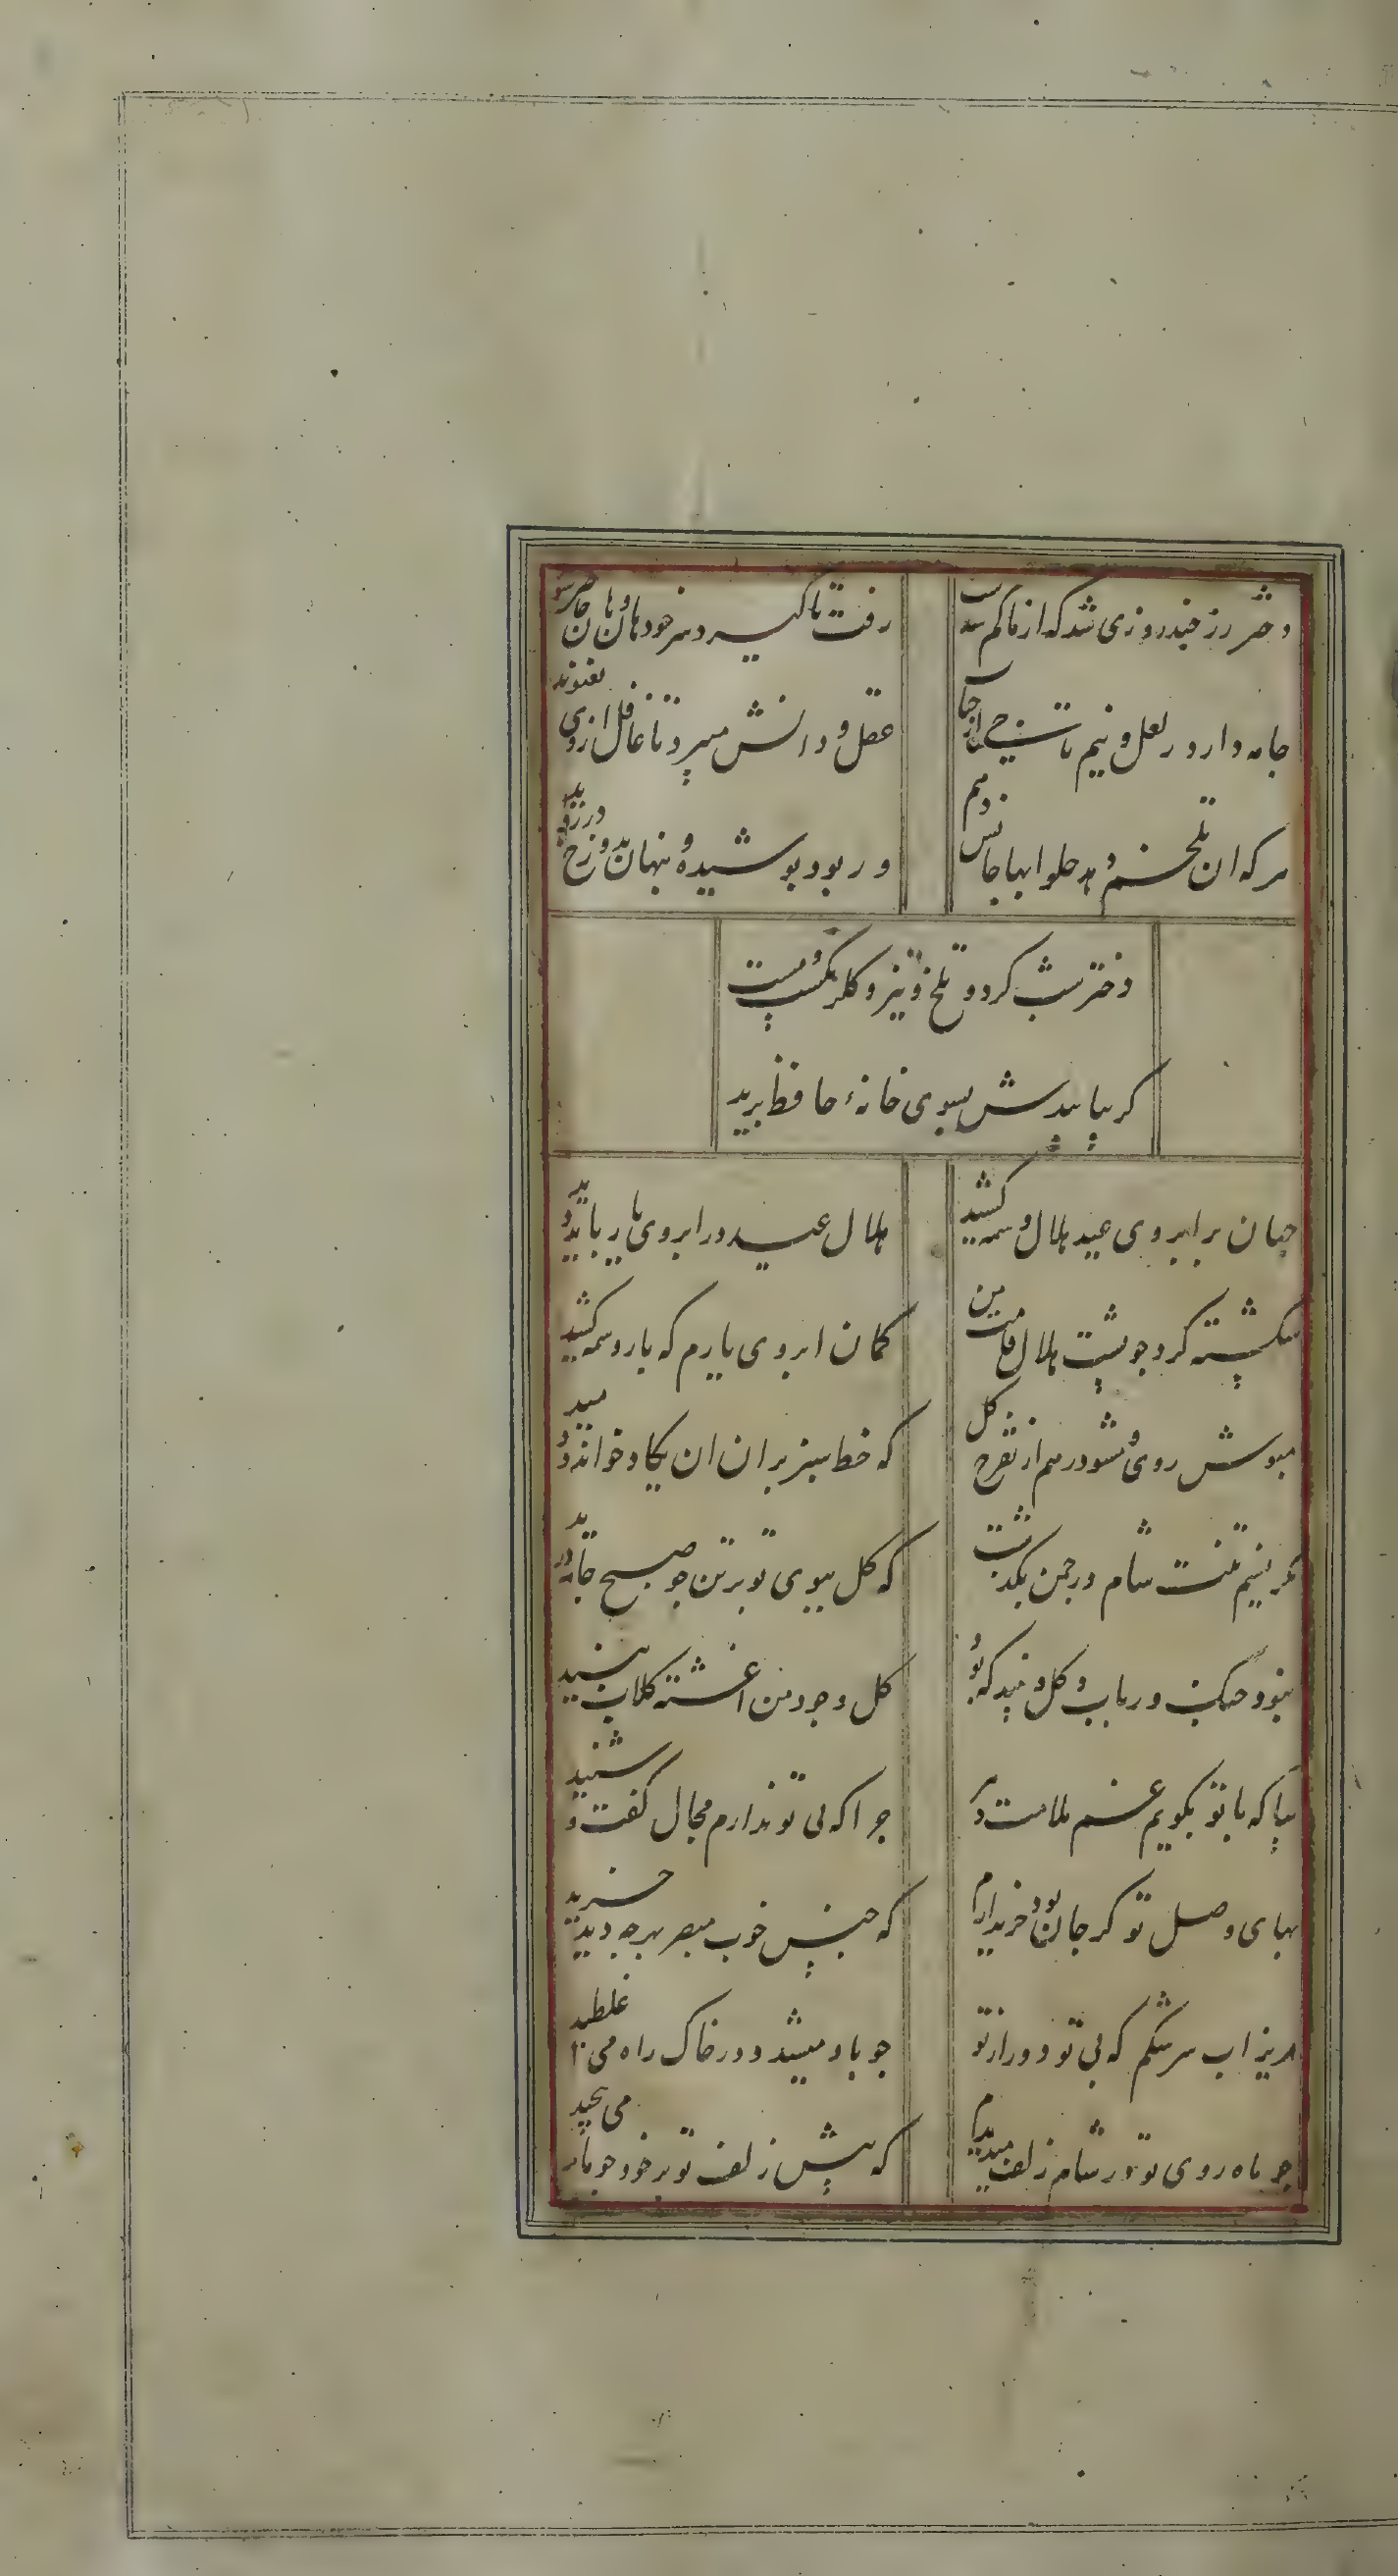 دختر رز چند روزی شد که از ما کم شدست
رفت تا کیرد سر خود هان و هان حاضر شوید
جامه دارد ز لعل و نیم تاجی از حباب
عقل و دانش میبرد تا غافل از وی نغنوید
هر که ان تلخم دهد حلوا بها جانش دهم
ور بود پوشیده و پنهان بدوزخ در روید
دختر شب کرد و تلخ و تیز و کلرنکست و مست
کر بیابیدش بسوی خانهٔ حافظ برید
جهان بر ابروی عید هلال وسمه کشید
هلال عید در ابروی یار باید دید
شکسته کرد چو پشت هلال قامت من
کمان ابروی یارم که باز وسمه کشید
مپوش روی و مشو در هم از تفرج کل
که خط سبز بران ان یکاد خواند و دمید
مکر نسیم تنت شام در چمن بکدشت
که کل ببوی تو بر تن چو صبح جامه درید
نبود چنک و رباب و کل و نبید که بود
کل وجود من اغشته کلاب نبید
بیا که با تو بکویم غم ملامت دل
چرا که بی تو ندارم مجال کفت و شنید
بهای وصل تو کر جان بود خریدارم
که جنس خوب مبصر بهر چه دید خرید
مریز اب سرشکم که بی تو دور از تو
چو باد میشد و در خاک راه می غلطید
چو ماه روی تو در شام زلف میدیدم
که پیش زلف تو بر خود چو مار می پیچید